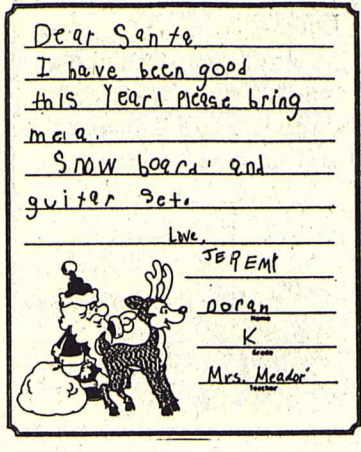 Dear Santa.
I have been good
this Year! Please bring
me a.
Snow board. and
guitar set.
Love,
JEREMY
Doran
Name
K
Grade
Mrs. Meador
Teacher